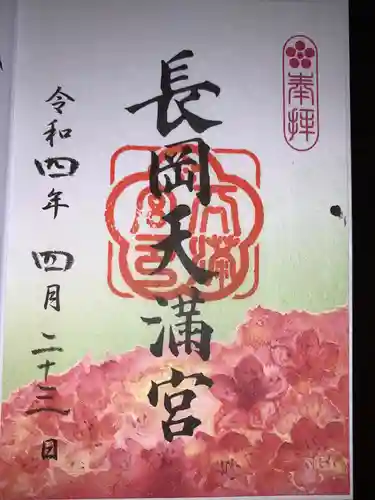 奉拝
長岡天満宮
令和四年四月二十三日